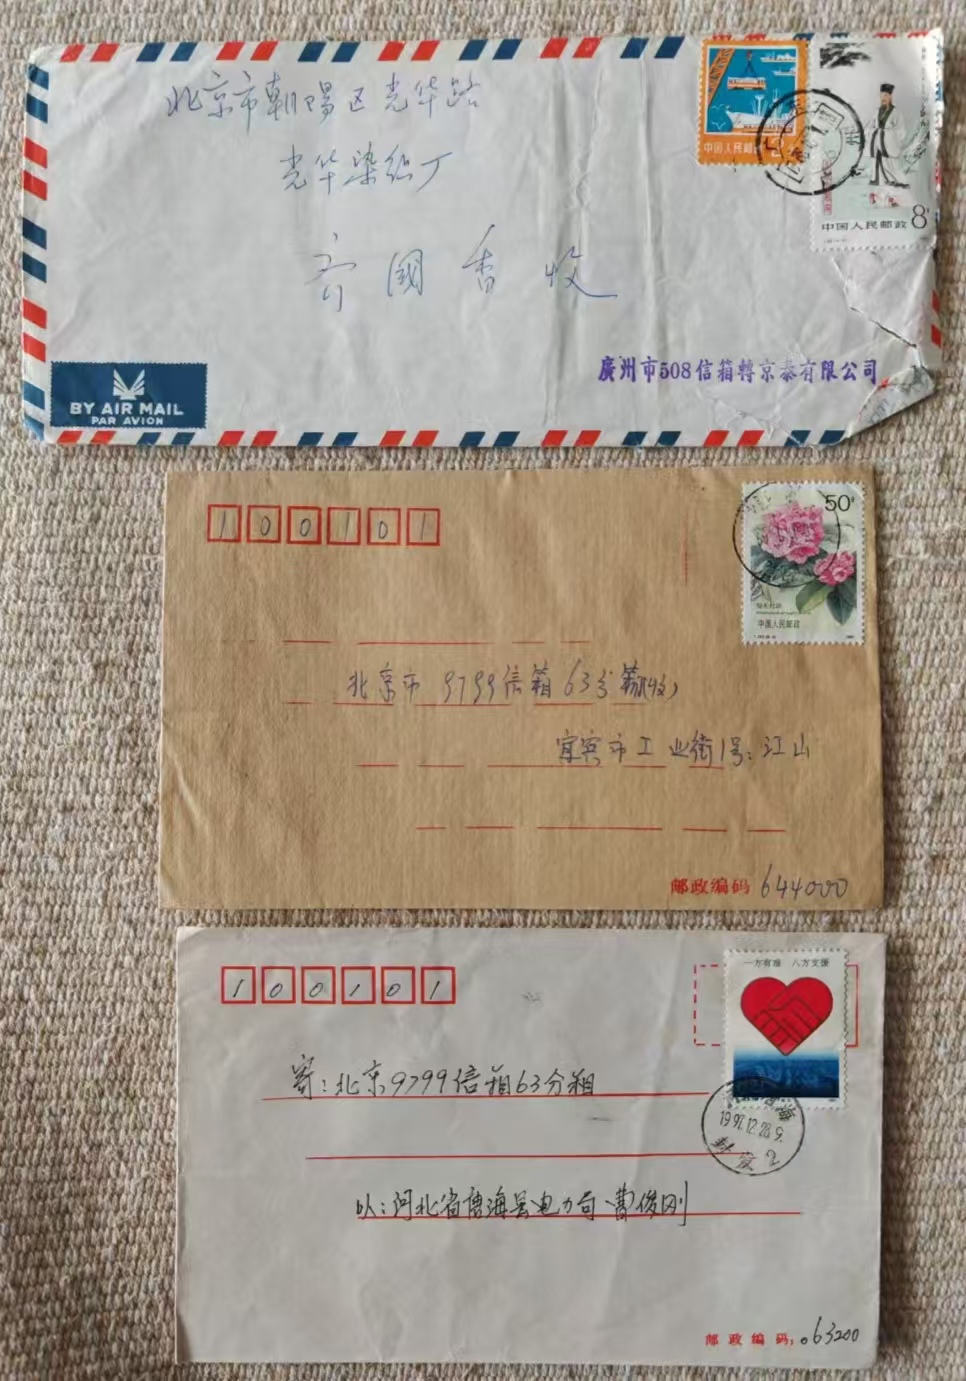 北京市朝阳区光华路
光华染织厂
齐國香收
中国人民邮政
中国人民邮政 8分
廣州市508信箱轉京泰有限公司
BY AIR MAIL
PAR AVION
100101
50分
中国人民邮政
北京市9799信箱63分箱(收)
宜宾市工业街1号:江山
邮政编码 644000
100101
一方有难 八方支援
寄:北京9799信箱63分箱
1991.12.28.9.
以:河北省唐海县电力局 曹俊刚
邮政编码:063200